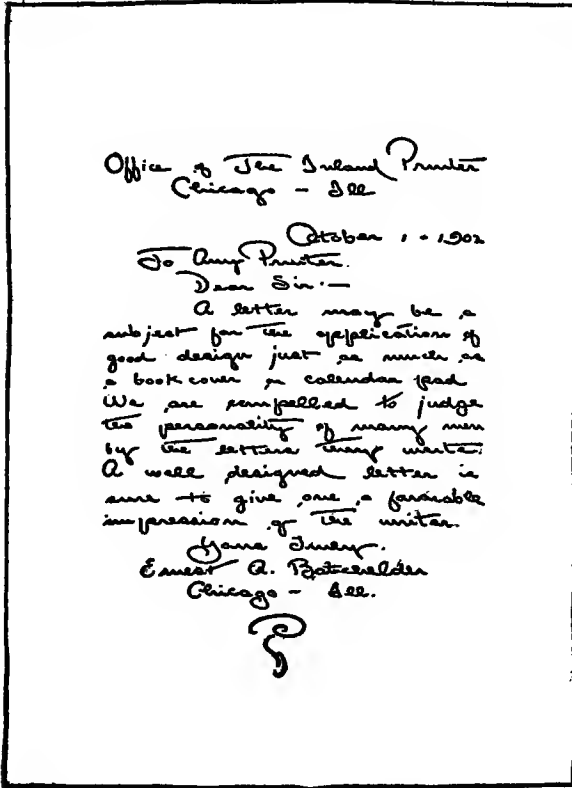 Office of The Inland Printer
Chicago - Ill
October 1 - 1902
To Any Printer.
Dear Sir. —
A letter may be a
subject for the application of
good design just as much as
a book cover or calendar pad
We are compelled to judge
the personality of many men
by the letters they write.
A well designed letter is
sure to give one a favorable
impression of the writer.
Yours Truly.
Ernest A. Batchelder
Chicago - Ill.